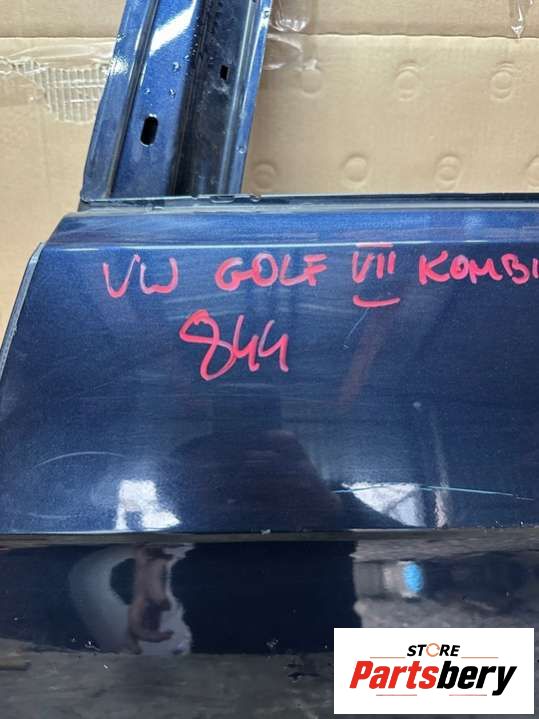 VW GOLF VII KOMBI
844
STORE
Partsbery